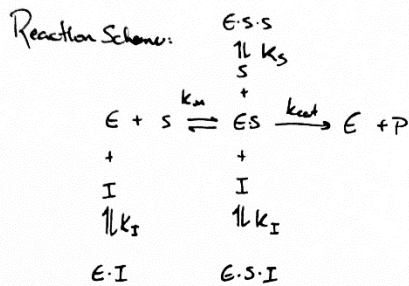 Reaction Scheme:
E·S·S
⥮ Ks
S
+
E + S ⇌ Km ES kcat → E + P
+ +
I I
⥮ KI ⥮ KI
E·I E·S·I